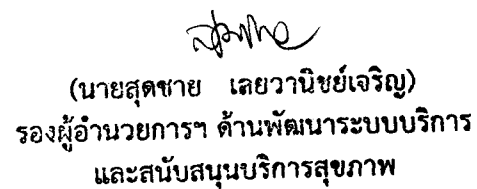 (นายสุดชาย เลยวานิชย์เจริญ)
รองผู้อำนวยการฯ ด้านพัฒนาระบบบริการ
และสนับสนุนบริการสุขภาพ